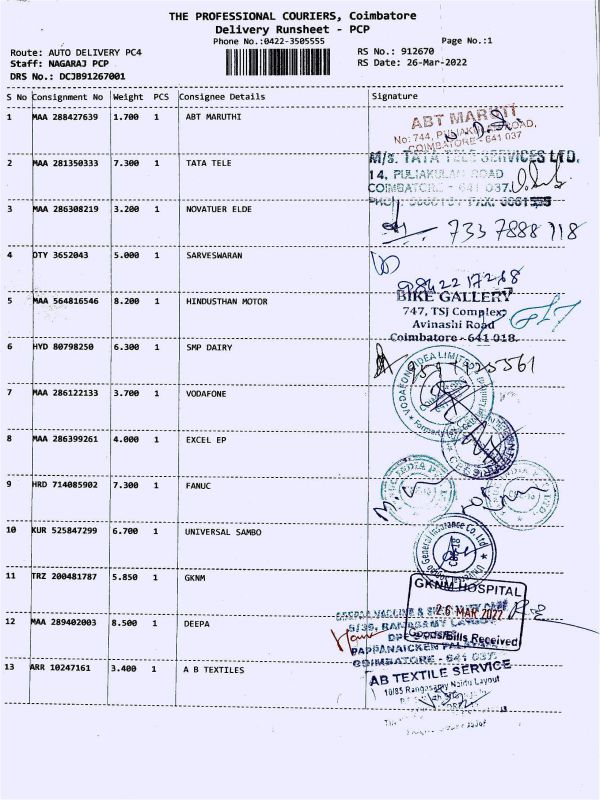 THE PROFESSIONAL COURIERS, Coimbatore
Delivery Runsheet - PCP
Phone No.:0422-3505555
Page No.:1
Route: AUTO DELIVERY PC4
RS No.: 912670
Staff: NAGARAJ PCP
RS Date: 26-Mar-2022
DRS No.: DCJB91267001
S No Consignment No Weight PCS Consignee Details Signature
1 MAA 288427639 1.700 1 ABT MARUTHI
ABT MARUTI
No: 744, PULIAKULAM ROAD,
COIMBATORE - 641 037
2 MAA 281350333 7.300 1 TATA TELE
M/s. TATA TELE SERVICES LTD.
14, PULIAKULAM ROAD
COIMBATORE - 641 037.
3 MAA 286308219 3.200 1 NOVATUER ELDE
733 7888 118
4 OTY 3652043 5.000 1 SARVESWARAN
98422 17268
5 MAA 564816546 8.200 1 HINDUSTHAN MOTOR
BIKE GALLERY
747, TSJ Complex
Avinashi Road
Coimbatore - 641 018.
6 HYD 80798250 6.300 1 SMP DAIRY
7 MAA 286122133 3.700 1 VODAFONE
VODAFONE IDEA LIMITED
8 MAA 286399261 4.000 1 EXCEL EP
9 HRD 714085902 7.300 1 FANUC
10 KUR 525847299 6.700 1 UNIVERSAL SAMBO
General Insurance Co. Ltd
CBE-18
11 TRZ 200481787 5.850 1 GKNM
GKNM HOSPITAL
26 MAR 2022
Goods/Bills Received
12 MAA 289402003 8.500 1 DEEPA
PAPPANAICKEN PALAYAM
COIMBATORE - 641 037.
13 ARR 10247161 3.400 1 A B TEXTILES
AB TEXTILE SERVICE
10/85 Rangasamy Naidu Layout